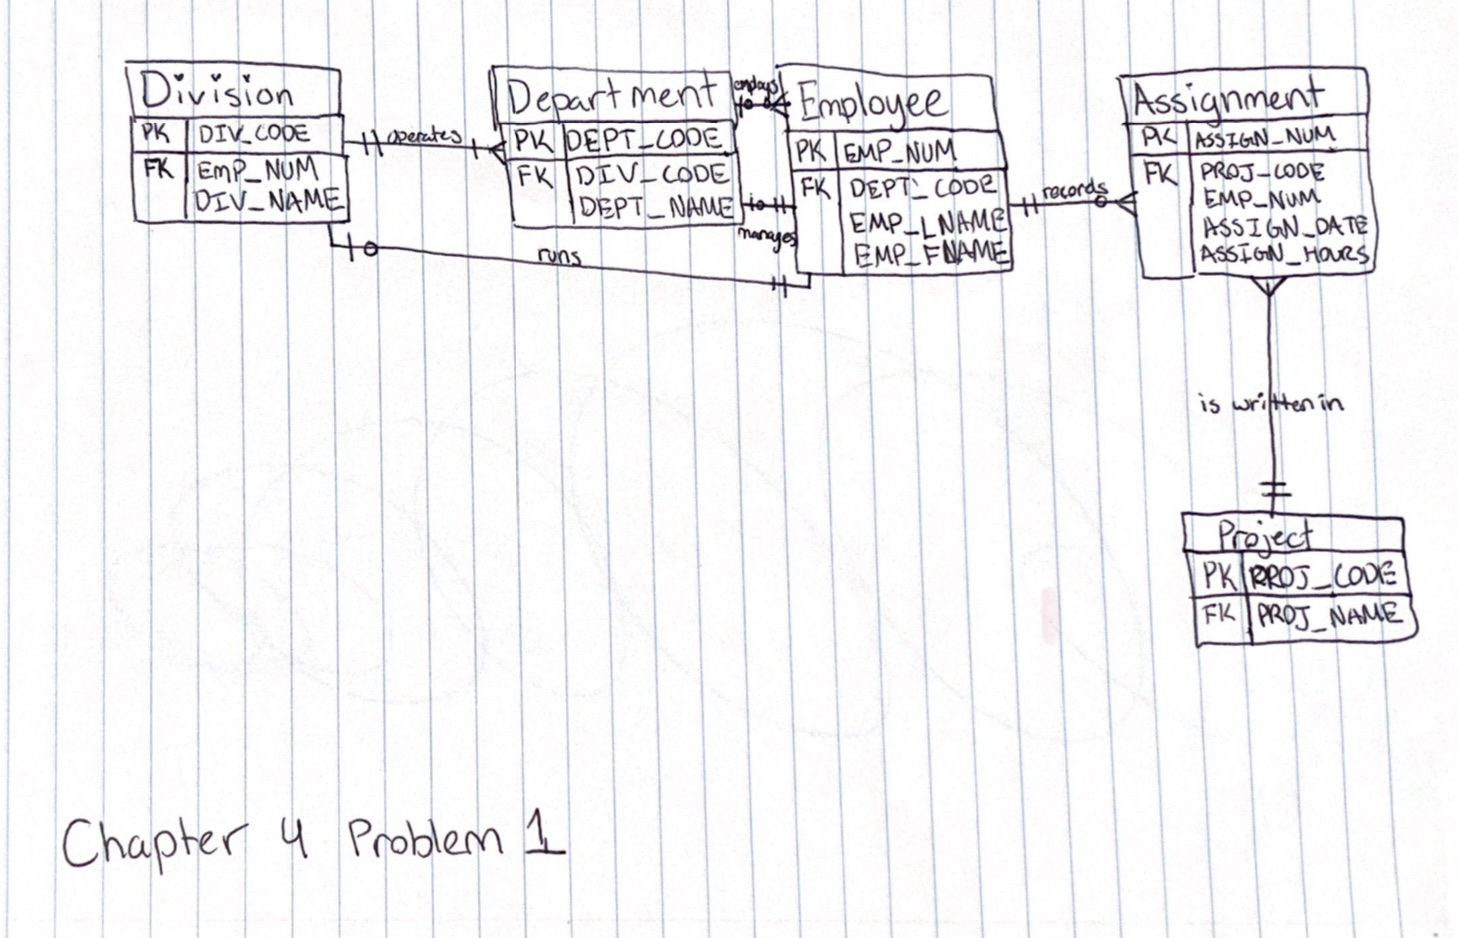 Division
PK DIV_CODE
FK EMP_NUM
DIV_NAME
operates
Department
PK DEPT_CODE
FK DIV_CODE
DEPT_NAME
employs
manages
runs
Employee
PK EMP_NUM
FK DEPT_CODE
EMP_LNAME
EMP_FNAME
records
Assignment
PK ASSIGN_NUM
FK PROJ_CODE
EMP_NUM
ASSIGN_DATE
ASSIGN_HOURS
is written in
Project
PK PROJ_CODE
FK PROJ_NAME
Chapter 4 Problem 1